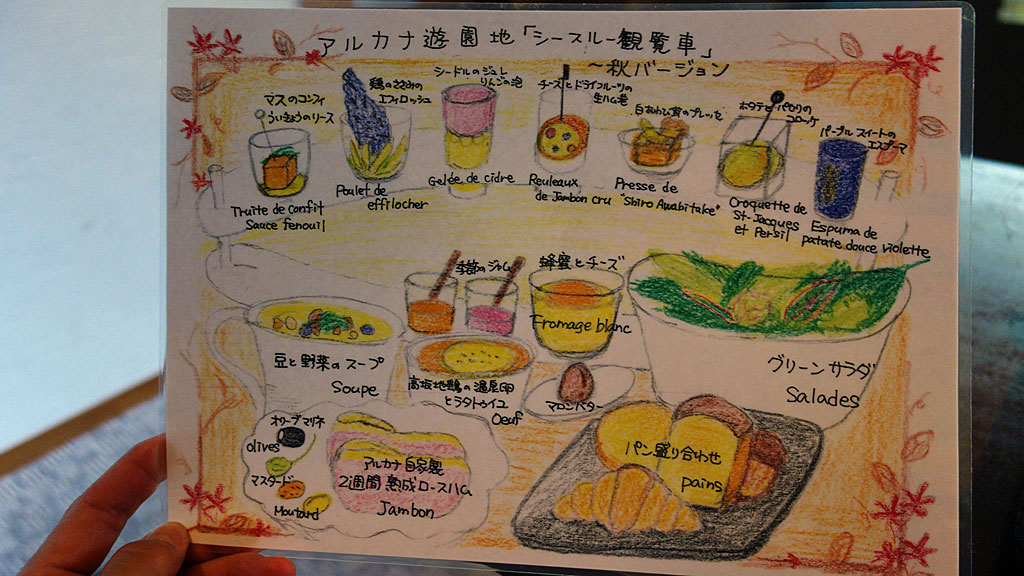 アルカナ遊園地「シースルー観覧車」
〜秋バージョン
マスのコンフィ
ういきょうのソース
Truite de confit
Sauce fenouil
鶏のささみの
エフィロッシュ
Poulet de
effilocher
シードルのジュレ
りんごの泡
Gelée de cidre
チーズとドライフルーツの
生ハム巻
Reuleaux
de Jambon cru
白あわび茸のプレッセ
Presse de
"Shiro Awabitake"
ホタテとパセリの
コロッケ
Croquette de
St-Jacques
et Persil
パープルスイートの
エスプーマ
Espuma de
patate douce violette
季節のジャム
蜂蜜とチーズ
Fromage blanc
グリーンサラダ
Salades
豆と野菜のスープ
Soupe
高坂地鶏の温泉卵
とラタトゥイユ
Oeuf
マロンバター
オリーブマリネ
olives
マスタード
Moutard
アルカナ自家製
2週間熟成ロースハム
Jambon
パン盛り合わせ
pains